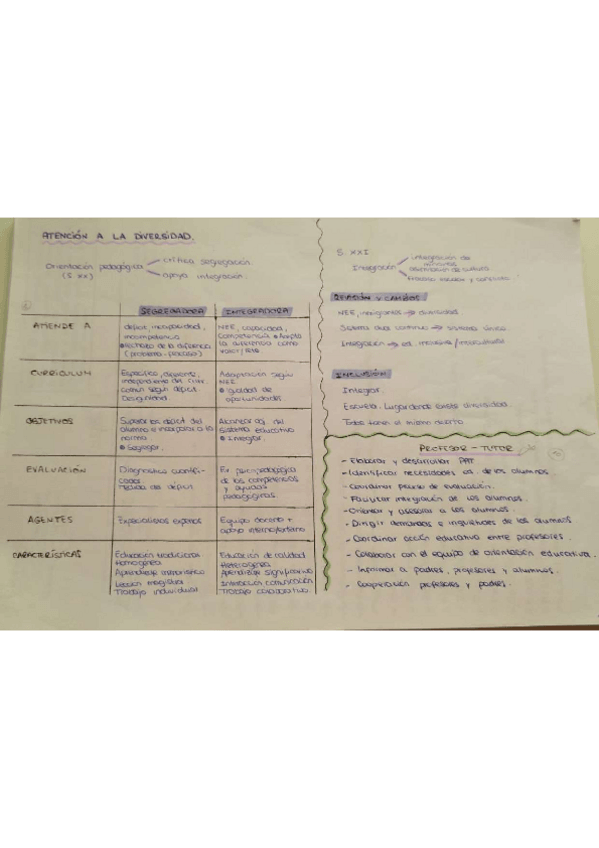 ATENCIÓN A LA DIVERSIDAD.
Orientación pedagógica
(S. XX)
crítica segregación
apoya integración.
SEGREGADORA
INTEGRADORA
ATIENDE A
déficit, incapacidad,
incompetencia
Rechazo de la diferencia
(problema-
NEE, capacidad,
competencia Acepta
la diferencia como
valor/
CURRÍCULUM
Específico, diferente,
independiente del
común según déficit
Desigualdad
Adaptación según
NEE
Igualdad de
oportunidades.
OBJETIVOS
Superar los déficit del
alumno e incorporar a la
norma
Segregar.
Alcanzar obj. del
Sistema educativo
Integrar.
EVALUACIÓN
Diagnóstico cuantifi-
cador
Medida del déficit
Ev. psicopedagógica
de las competencias
y ayudas
pedagógicas
AGENTES
Especialistas expertos
Equipo docente +
apoyo interno/externo
CARACTERÍSTICAS
Educación tradicional
Homogénea
Aprendizaje
Lección magistral
Trabajo individual
Educación de calidad
Heterogénea
Aprendizaje significativo
Interacción comunicación
Trabajo colaborativo
S. XXI
Integración
integración de
de cultura
Fracaso escolar y
Y CAMBIOS
NEE, inmigrantes → diversidad
Sistema dual continuo → sistema único
Integración → ed. inclusiva /
INCLUSIÓN
Integrar.
Escuela. Lugar donde existe diversidad.
Todos tienen el mismo
PROFESOR - TUTOR
- Elaborar y desarrollar PAT
- Identificar necesidades ed. de los alumnos.
- Coordinar proceso de evaluación.
- Facilitar integración de los alumnos.
- Orientar y asesorar a los alumnos.
- Dirigir demandas e inquietudes de los alumnos
- Coordinar acción educativa entre profesores.
- Colaborar con el equipo de orientación educativa.
- Informar a padres, profesores y alumnos.
- Cooperación profesores y padres.